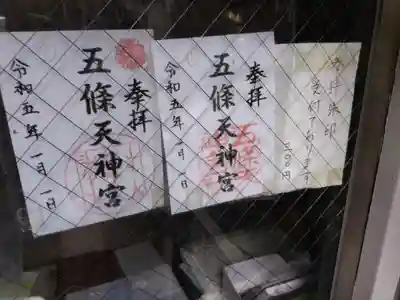 奉拝
五條天神宮
令和五年一月一日
奉拝
五條天神宮
令和五年一月 日
御朱印
受付ております
三〇〇円